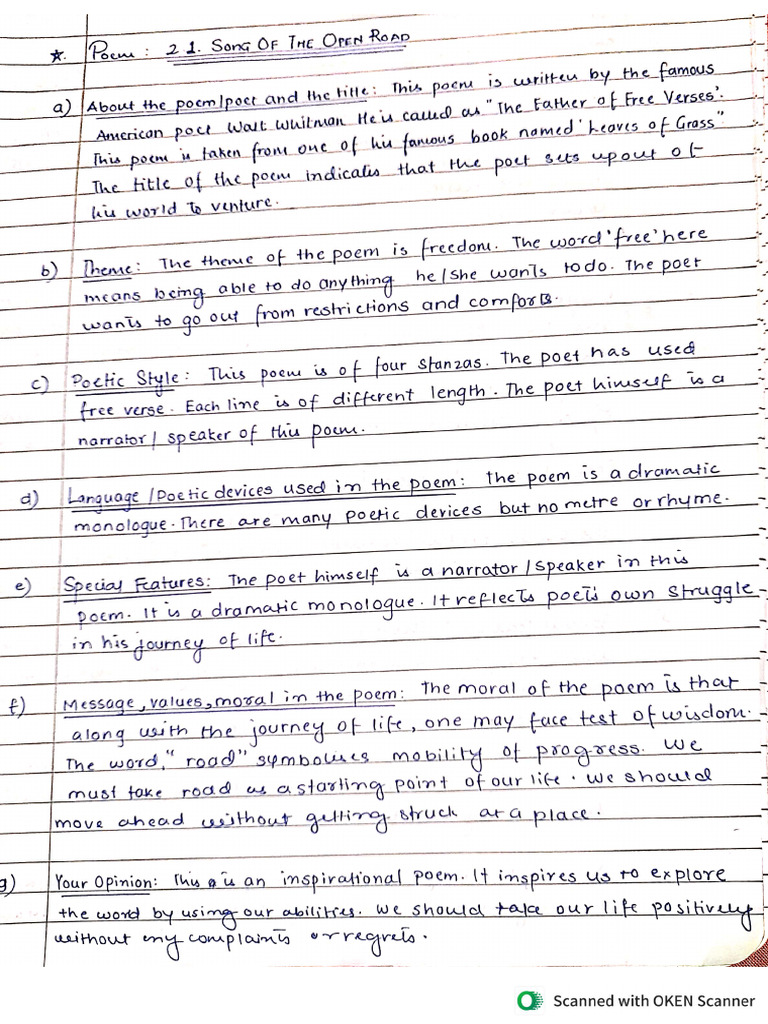 ☆. Poem: 2 1. SONG OF THE OPEN ROAD
a) About the poem/poet and the title: This poem is written by the famous
American poet Walt Whitman He is called as "The Father of Free Verses'.
This poem is taken from one of his famous book named 'Leaves of Grass"
The title of the poem indicates that the poet sets up out of
his world to venture.
b) Theme: The theme of the poem is freedom. The word 'free' here
means being able to do anything he/she wants to do. The poet
wants to go out from restrictions and comforts.
c) Poetic Style: This poem is of four stanzas. The poet has used
free verse. Each line is of different length. The poet himself is a
narrator/ speaker of this poem.
d) Language/Poetic devices used in the poem: The poem is a dramatic
monologue. There are many poetic devices but no metre or rhyme.
e) Special Features: The poet himself is a narrator/speaker in this
poem. It is a dramatic monologue. It reflects poet's own struggle
in his journey of life.
f) Message, values, moral in the poem: The moral of the poem is that
along with the journey of life, one may face test of wisdom.
The word, "road" symbolises mobility of progress. We
must take road as a starting point of our life. We should
move ahead without getting struck at a place.
g) Your Opinion: This is an inspirational poem. It inspires us to explore
the word by using our abilities. We should take our life positively
without any complaints or regrets.
Scanned with OKEN Scanner